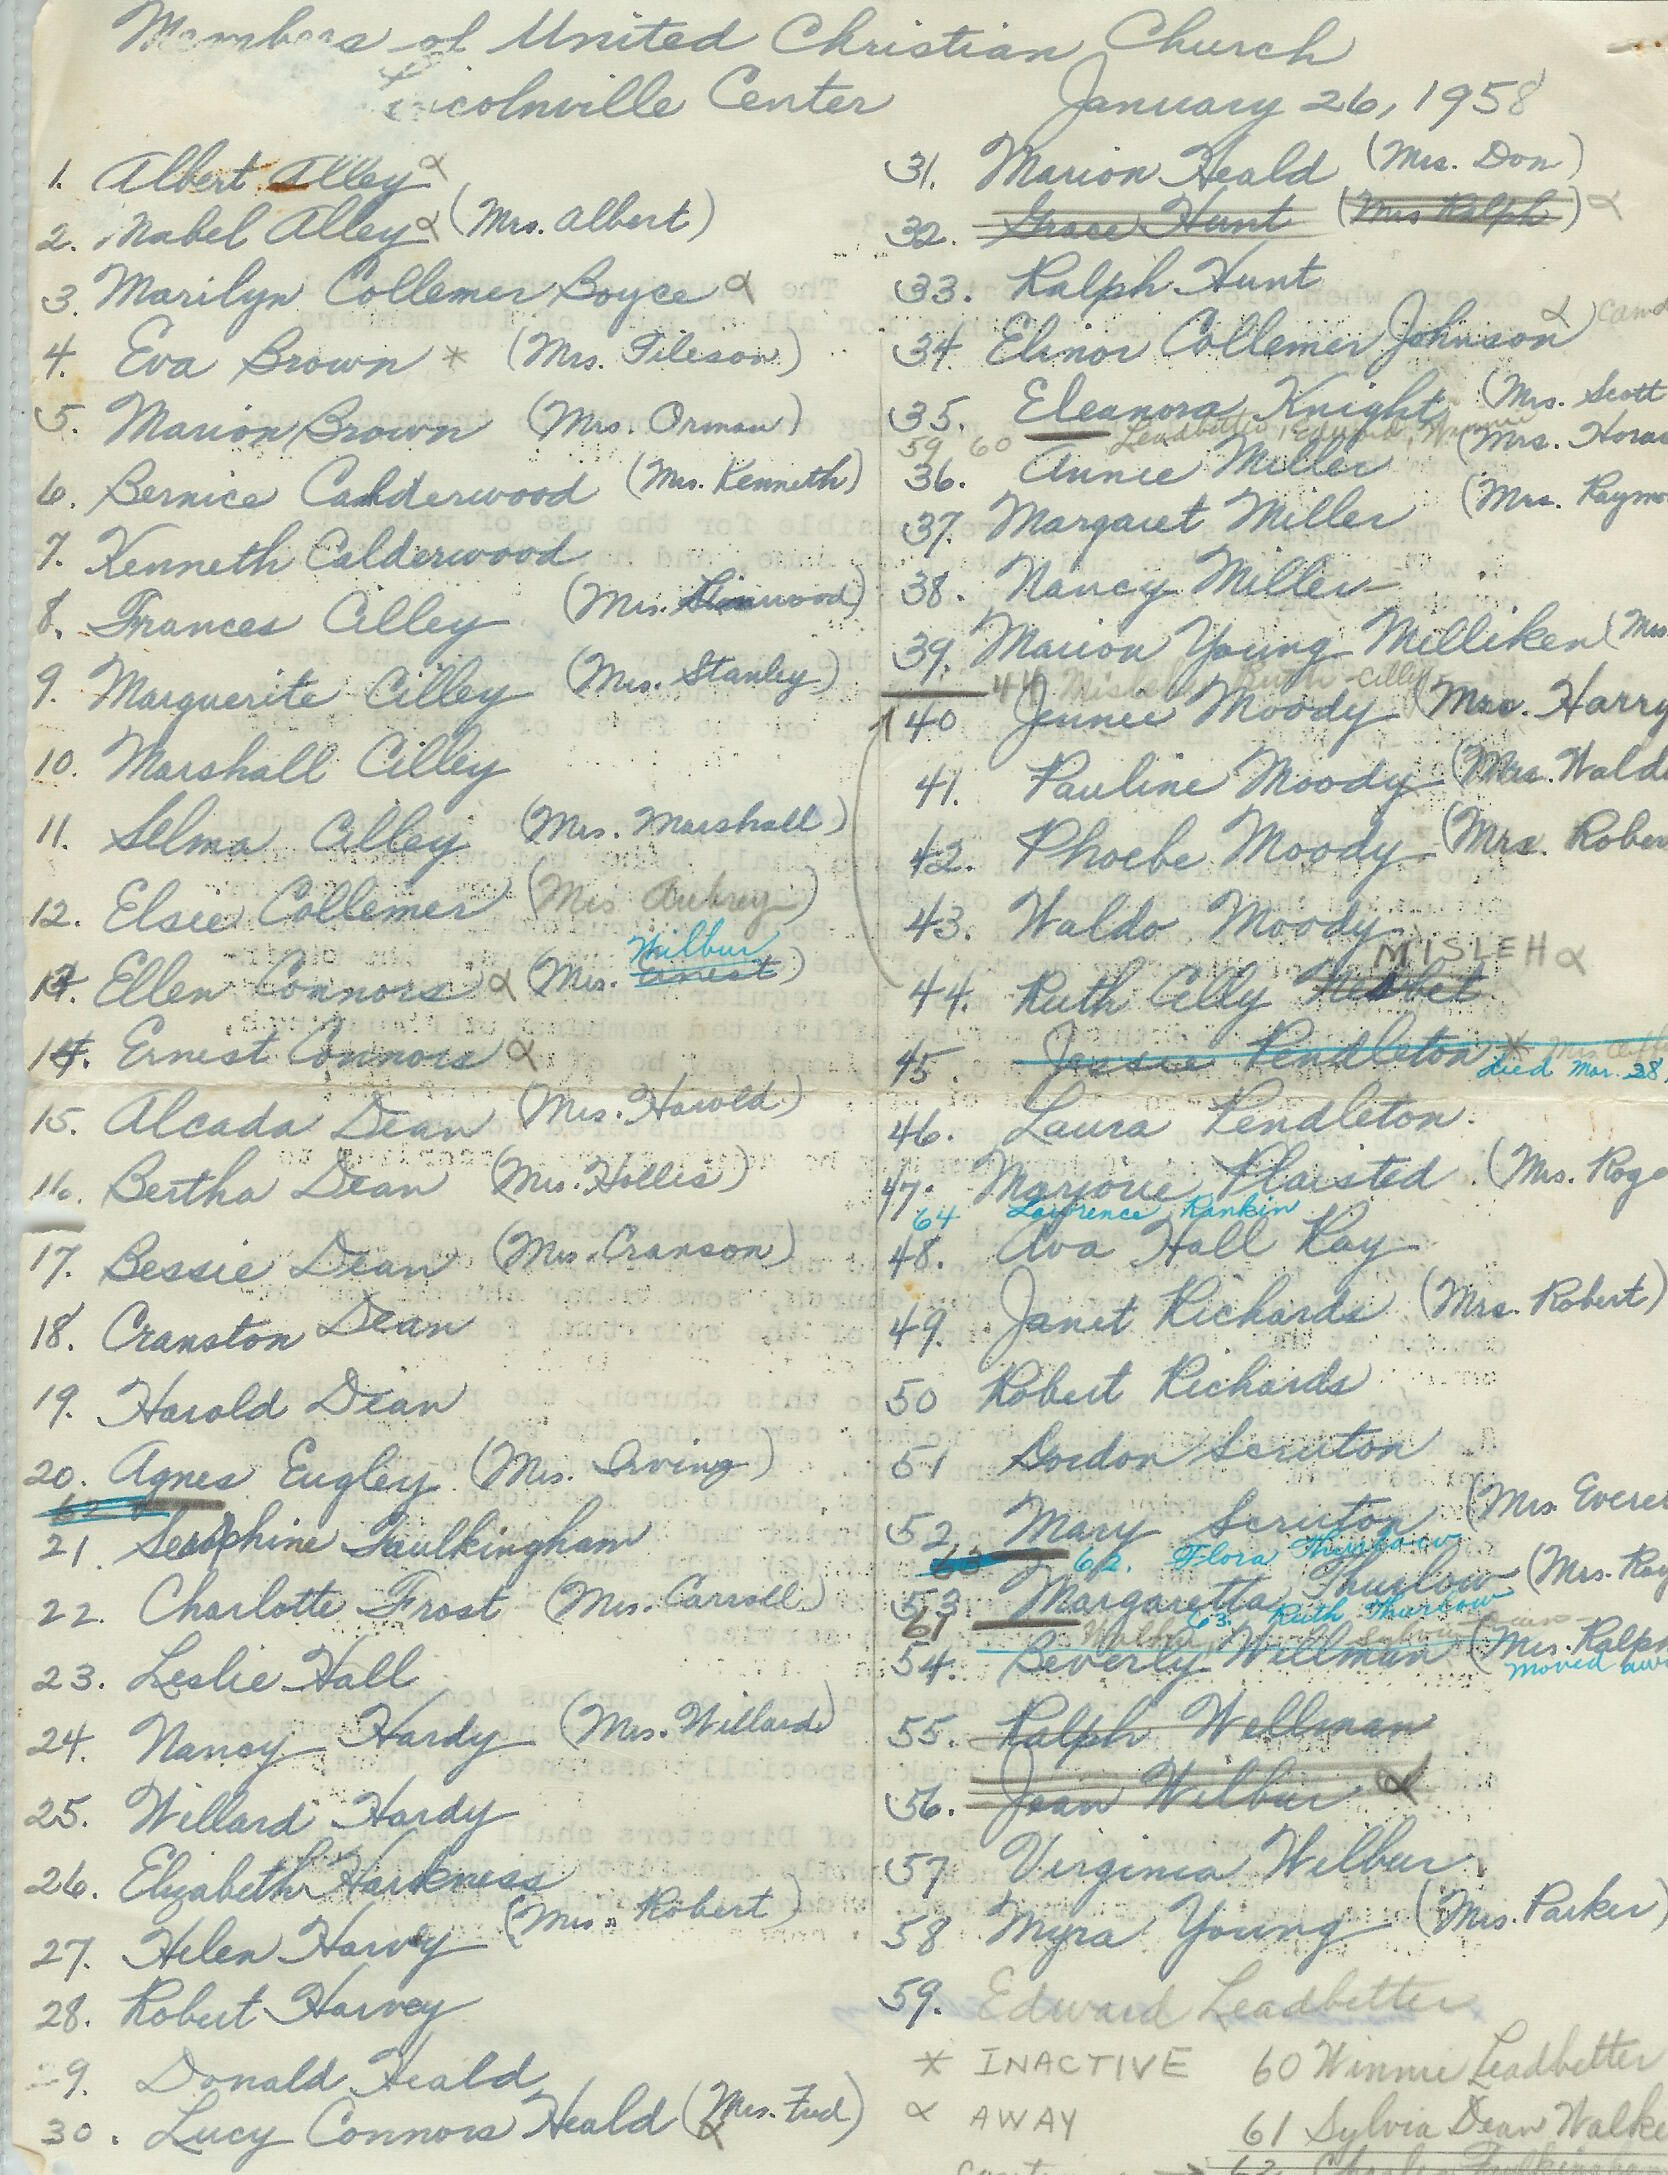 Members of United Christian Church
Lincolnville Center January 26, 1958
1. Albert Alley α
2. Mabel Alley α (Mrs. Albert)
3. Marilyn Collemer Boyce α
4. Eva Brown * (Mrs. Tileson)
5. Marion Brown (Mrs. Orman)
6. Bernice Calderwood (Mrs. Kenneth)
7. Kenneth Calderwood
8. Frances Cilley (Mrs. Linwood)
9. Marguerite Cilley (Mrs. Stanley)
10. Marshall Cilley
11. Selma Cilley (Mrs. Marshall)
12. Elsie Collemer (Mrs Aubrey)
Wilbur
13. Ellen Connors α (Mrs. Ernest)
14. Ernest Connors α
15. Alcada Dean (Mrs. Harold)
16. Bertha Dean (Mrs. Hollis)
17. Bessie Dean (Mrs. Cranson)
18. Cranston Dean
19. Harold Dean
20. Agnes Eugley (Mrs. Irving)
62
21. Seraphine Faulkingham
22. Charlotte Frost (Mrs. Carroll)
23. Leslie Hall
24. Nancy Hardy (Mrs. Willard)
25. Willard Hardy
26. Elizabeth Harkness
27. Helen Harvey (Mrs. Robert)
28. Robert Harvey
29. Donald Heald
30. Lucy Connors Heald (Mrs. Fred) α
31. Marion Heald (Mrs. Don)
32. Grace Hunt (Mrs Ralph) α
33. Ralph Hunt
34. Elinor Collemer Johnson α
35. Eleanora Knight (Mrs. Scott
59 60 Leadbetter, Edward, Winnie
36. Annie Miller (Mrs. Horac
37. Margaret Miller (Mrs. Raymo
38. Nancy Miller
39. Marion Young Milliken (Mrs
44 Misleh, Ruth Cilley
40 Jennie Moody (Mrs. Harry
41. Pauline Moody (Mrs. Waldo
42. Phoebe Moody (Mrs. Rober
43. Waldo Moody
MISLEH α
44. Ruth Cilly
45. Jessie Pendleton *
died Mar. 28,
46. Laura Pendleton.
47. Marjorie Plaisted (Mrs. Roge
64 Lawrence Rankin
48. Ava Hall Ray
49. Janet Richards (Mrs. Robert)
50 Robert Richards
51 Gordon Scruton
52 Mary Scruton (Mrs. Everet
63 62. Flora Thurlow
53 Margaretta Thurlow (Mrs. Ray
61 63. Ruth Thurlow
Walker, Sylvia Dean
54. Beverly Willman (Mrs. Ralph
moved awa
55. Ralph Wellman
56. Joan Wilbur α
57 Virginia Wilbur
58 Myra Young (Mrs. Parker)
59. Edward Leadbetter
* INACTIVE 60 Winnie Leadbetter
α AWAY 61 Sylvia Dean Walke
62 Charles Faulkingham